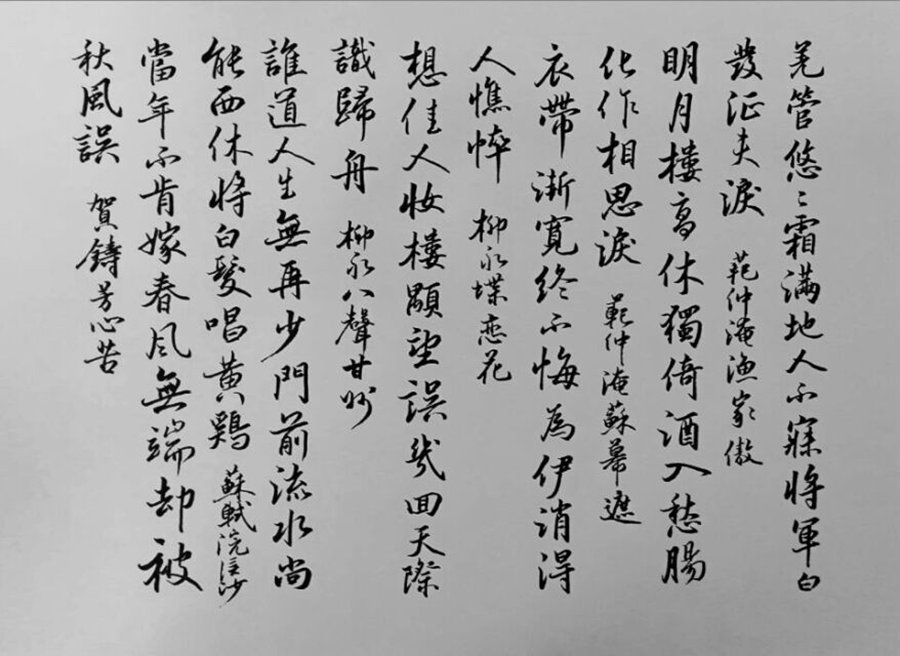 羌管悠〻霜满地人不寐将軍白
發征夫淚 范仲淹漁家傲
明月樓高休獨倚酒入愁腸
化作相思淚 範仲淹蘇幕遮
衣帶漸寬終不悔為伊消得
人憔悴 柳永蝶恋花
想佳人妝樓顒望误幾回天際
識歸舟 柳永八聲甘州
誰道人生無再少門前流水尚
能西休將白髮唱黄鷄 蘇軾浣溪沙
當年不肯嫁春风無端却被
秋風誤 賀鑄芳心苦